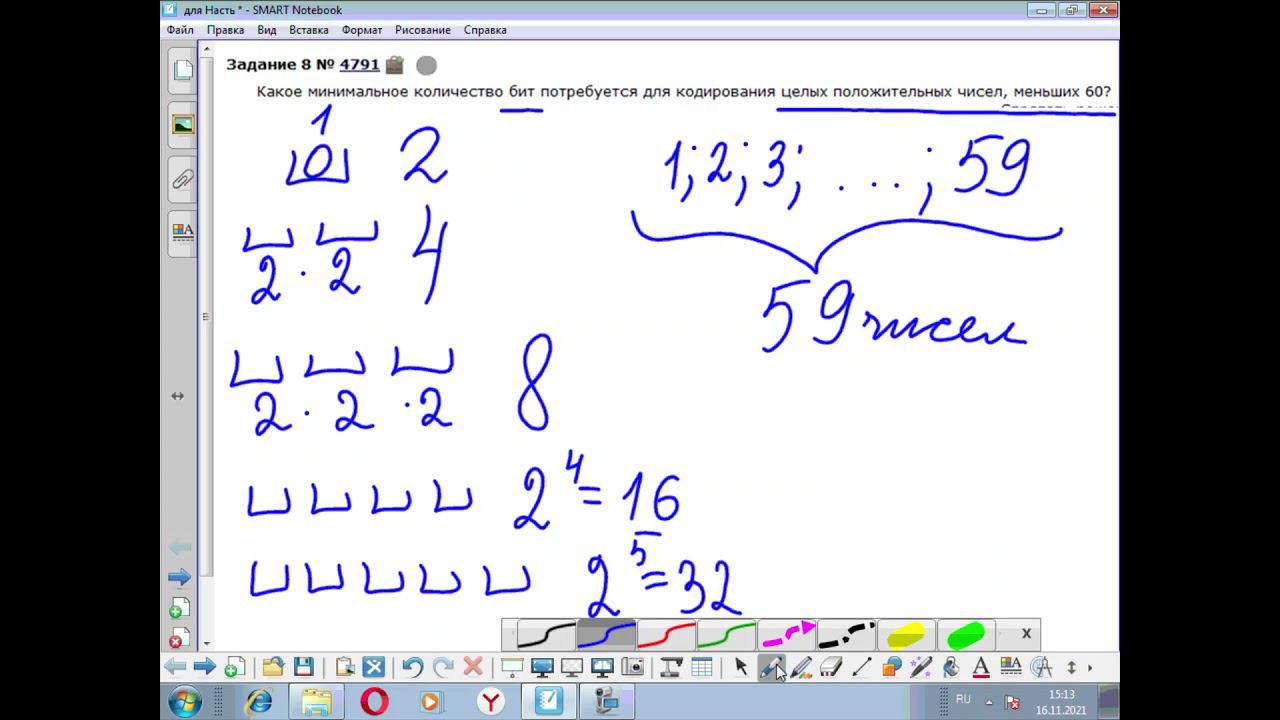 для Насть * - SMART Notebook
Файл Правка Вид Вставка Формат Рисование Справка
Задание 8 № 4791
Какое минимальное количество бит потребуется для кодирования целых положительных чисел, меньших 60?
1
0 2
1; 2; 3; . . . ; 59
2 · 2 4
59 чисел
2 · 2 · 2 8
2^4 = 16
2^5 = 32
X
RU 15:13
16.11.2021